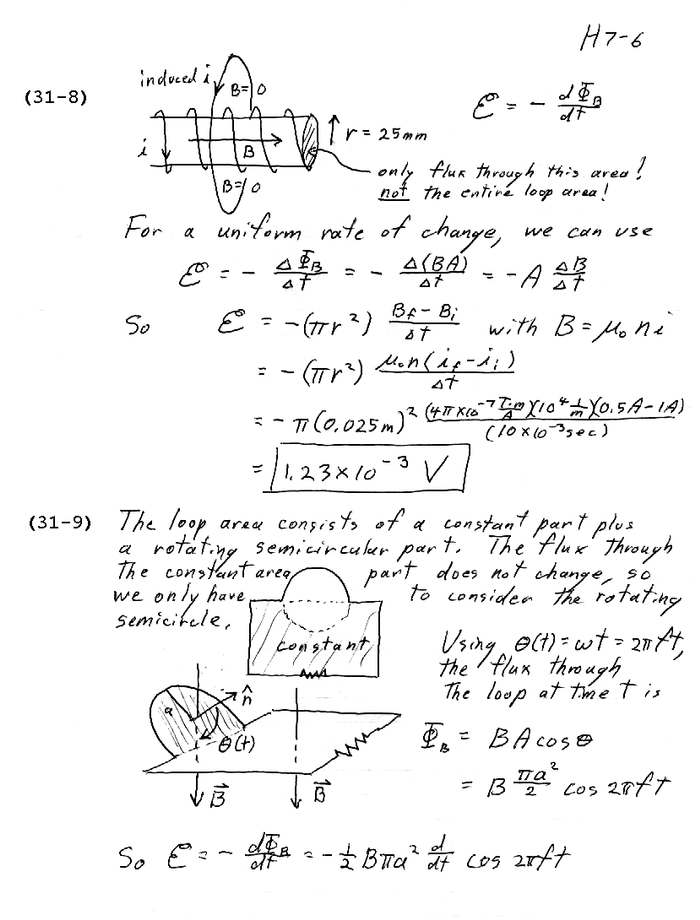 H7-6
(31-8)
induced i
B=0
ℰ = - dΦ_B/dt
i
B
r = 25mm
B=0
only flux through this area!
not the entire loop area!
For a uniform rate of change, we can use
ℰ = - ΔΦ_B/Δt = - Δ(BA)/Δt = -A ΔB/Δt
So ℰ = -(πr²) (B_f - B_i)/Δt with B = μ₀ni
= -(πr²) μ₀n(i_f - i_i)/Δt
= -π(0.025m)² (4π×10⁻⁷ T·m/A)(10⁴ 1/m)(0.5A-1A)/(10×10⁻³sec)
= 1.23×10⁻³ V
(31-9) The loop area consists of a constant part plus
a rotating semicircular part. The flux through
the constant area part does not change, so
we only have to consider the rotating
semicircle.
constant
Using θ(t)=ωt=2πft,
the flux through
the loop at time t is
a
n̂
θ(t)
B⃗
B⃗
Φ_B = BA cosθ
= B πa²/2 cos 2πft
So ℰ = - dΦ_B/dt = -½ Bπa² d/dt cos 2πft